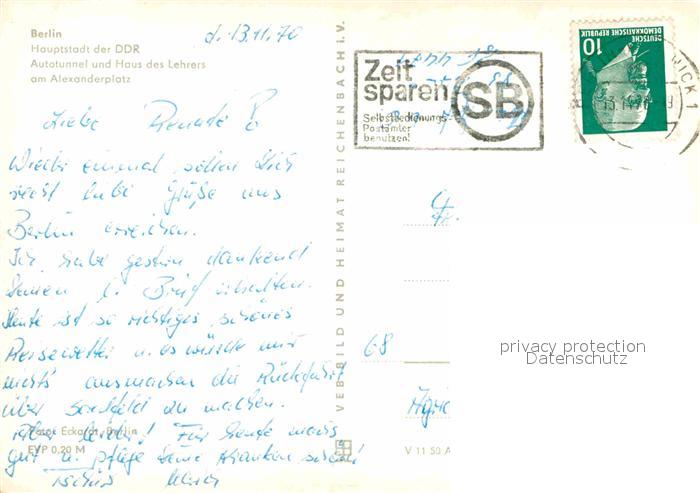 Berlin
Hauptstadt der DDR
Autotunnel und Haus des Lehrers
am Alexanderplatz
d. 13.11.70
Liebe Renate
Wieder einmal sollen Dich
recht liebe Grüße aus
Berlin erreichen.
Ich habe gestern dankend
Deinen l. Brief erhalten.
Heute ist so richtiges, schönes
Reisewetter u. es würde mir
nichts ausmachen die Rückfahrt
über Saalfeld zu machen.
Aber leider! Für heute mach's
gut u. pflege Deine Kranken schön!
Tschüs
Foto: Eckardt, Berlin
EVP 0,20 M
VEB BILD UND HEIMAT REICHENBACH i. V.
Zeit
sparen
SB
Selbstbedienungs-
Postämter
benutzen!
DEUTSCHE
DEMOKRATISCHE REPUBLIK
10
Fr.
68
V 11 50 A
privacy protection
Datenschutz